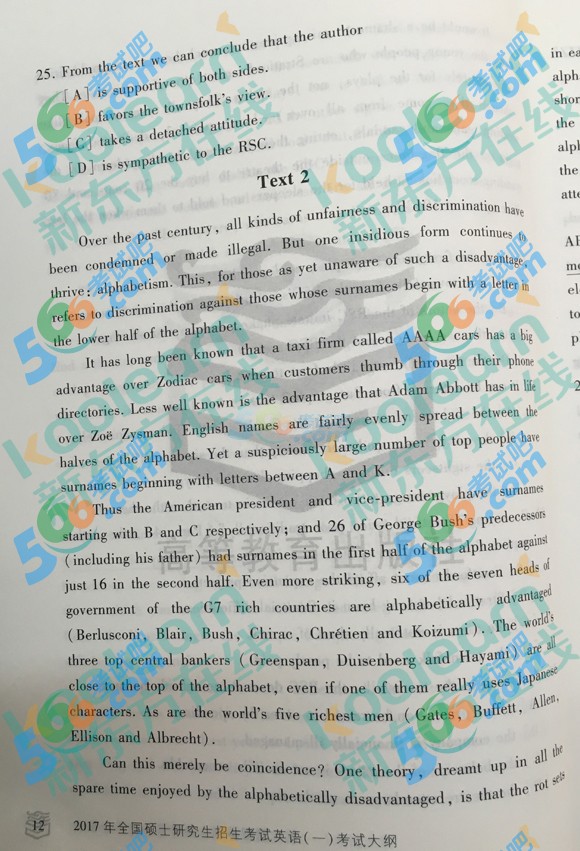 25. From the text we can conclude that the author
[A] is supportive of both sides.
[B] favors the townsfolk's view.
[C] takes a detached attitude.
[D] is sympathetic to the RSC.
Text 2
Over the past century, all kinds of unfairness and discrimination have
been condemned or made illegal. But one insidious form continues to
thrive: alphabetism. This, for those as yet unaware of such a disadvantage,
refers to discrimination against those whose surnames begin with a letter in
the lower half of the alphabet.
It has long been known that a taxi firm called AAAA cars has a big
advantage over Zodiac cars when customers thumb through their phone
directories. Less well known is the advantage that Adam Abbott has in life
over Zoë Zysman. English names are fairly evenly spread between the
halves of the alphabet. Yet a suspiciously large number of top people have
surnames beginning with letters between A and K.
Thus the American president and vice-president have surnames
starting with B and C respectively; and 26 of George Bush's predecessors
(including his father) had surnames in the first half of the alphabet against
just 16 in the second half. Even more striking, six of the seven heads of
government of the G7 rich countries are alphabetically advantaged
(Berlusconi, Blair, Bush, Chirac, Chrétien and Koizumi). The world's
three top central bankers (Greenspan, Duisenberg and Hayami) are all
close to the top of the alphabet, even if one of them really uses Japanese
characters. As are the world's five richest men (Gates, Buffett, Allen,
Ellison and Albrecht).
Can this merely be coincidence? One theory, dreamt up in all the
spare time enjoyed by the alphabetically disadvantaged, is that the rot sets
12 2017年全国硕士研究生招生考试英语(一)考试大纲
in ea
alph
shor
the
alph
the
atte
el
to
2
高等教育出版社
566考试吧.com
Koolearn
新东方在线